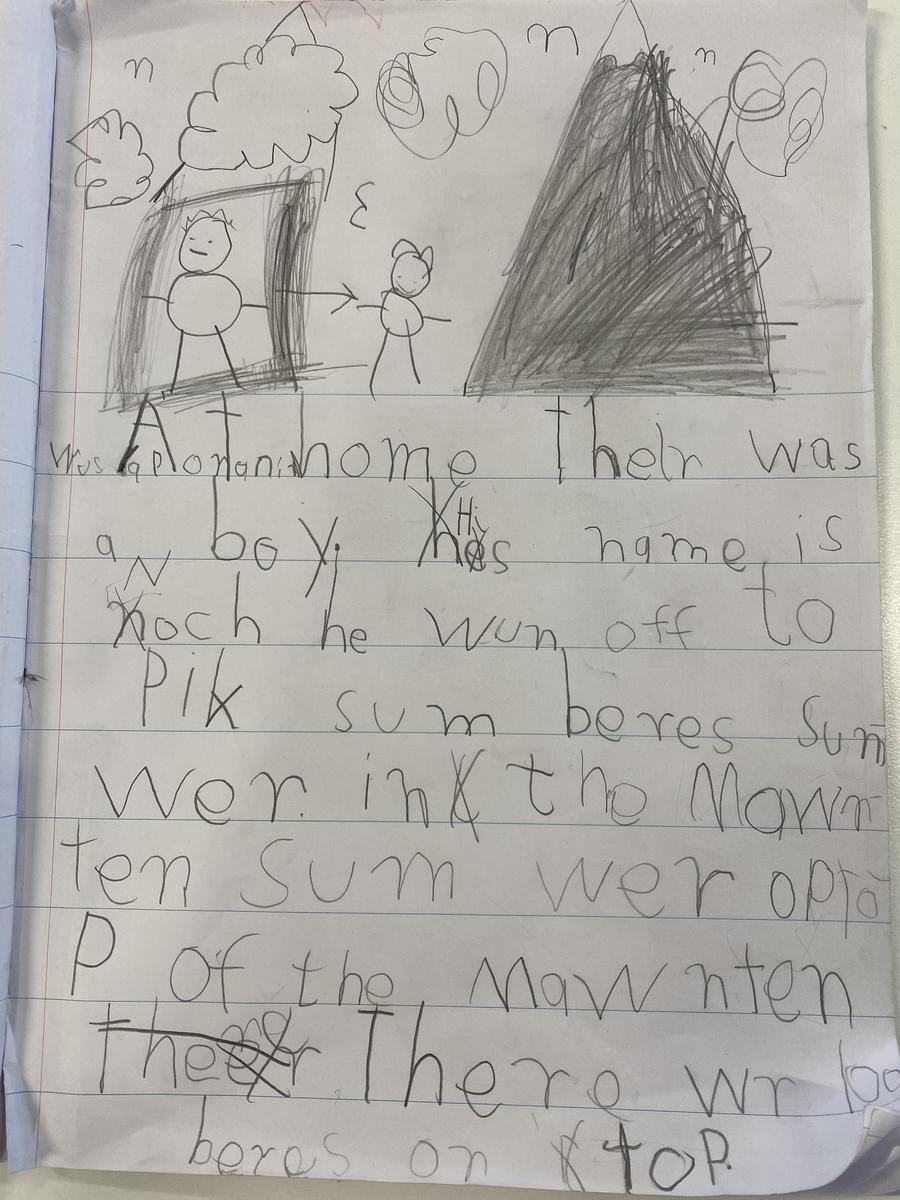 At home Their was
a boy. His name is
Noch he wun off to
Pik sum beres sum
wer in the Mawn
ten sum wer opto
P Of the Mawnten
There wr loo
beres on toP.